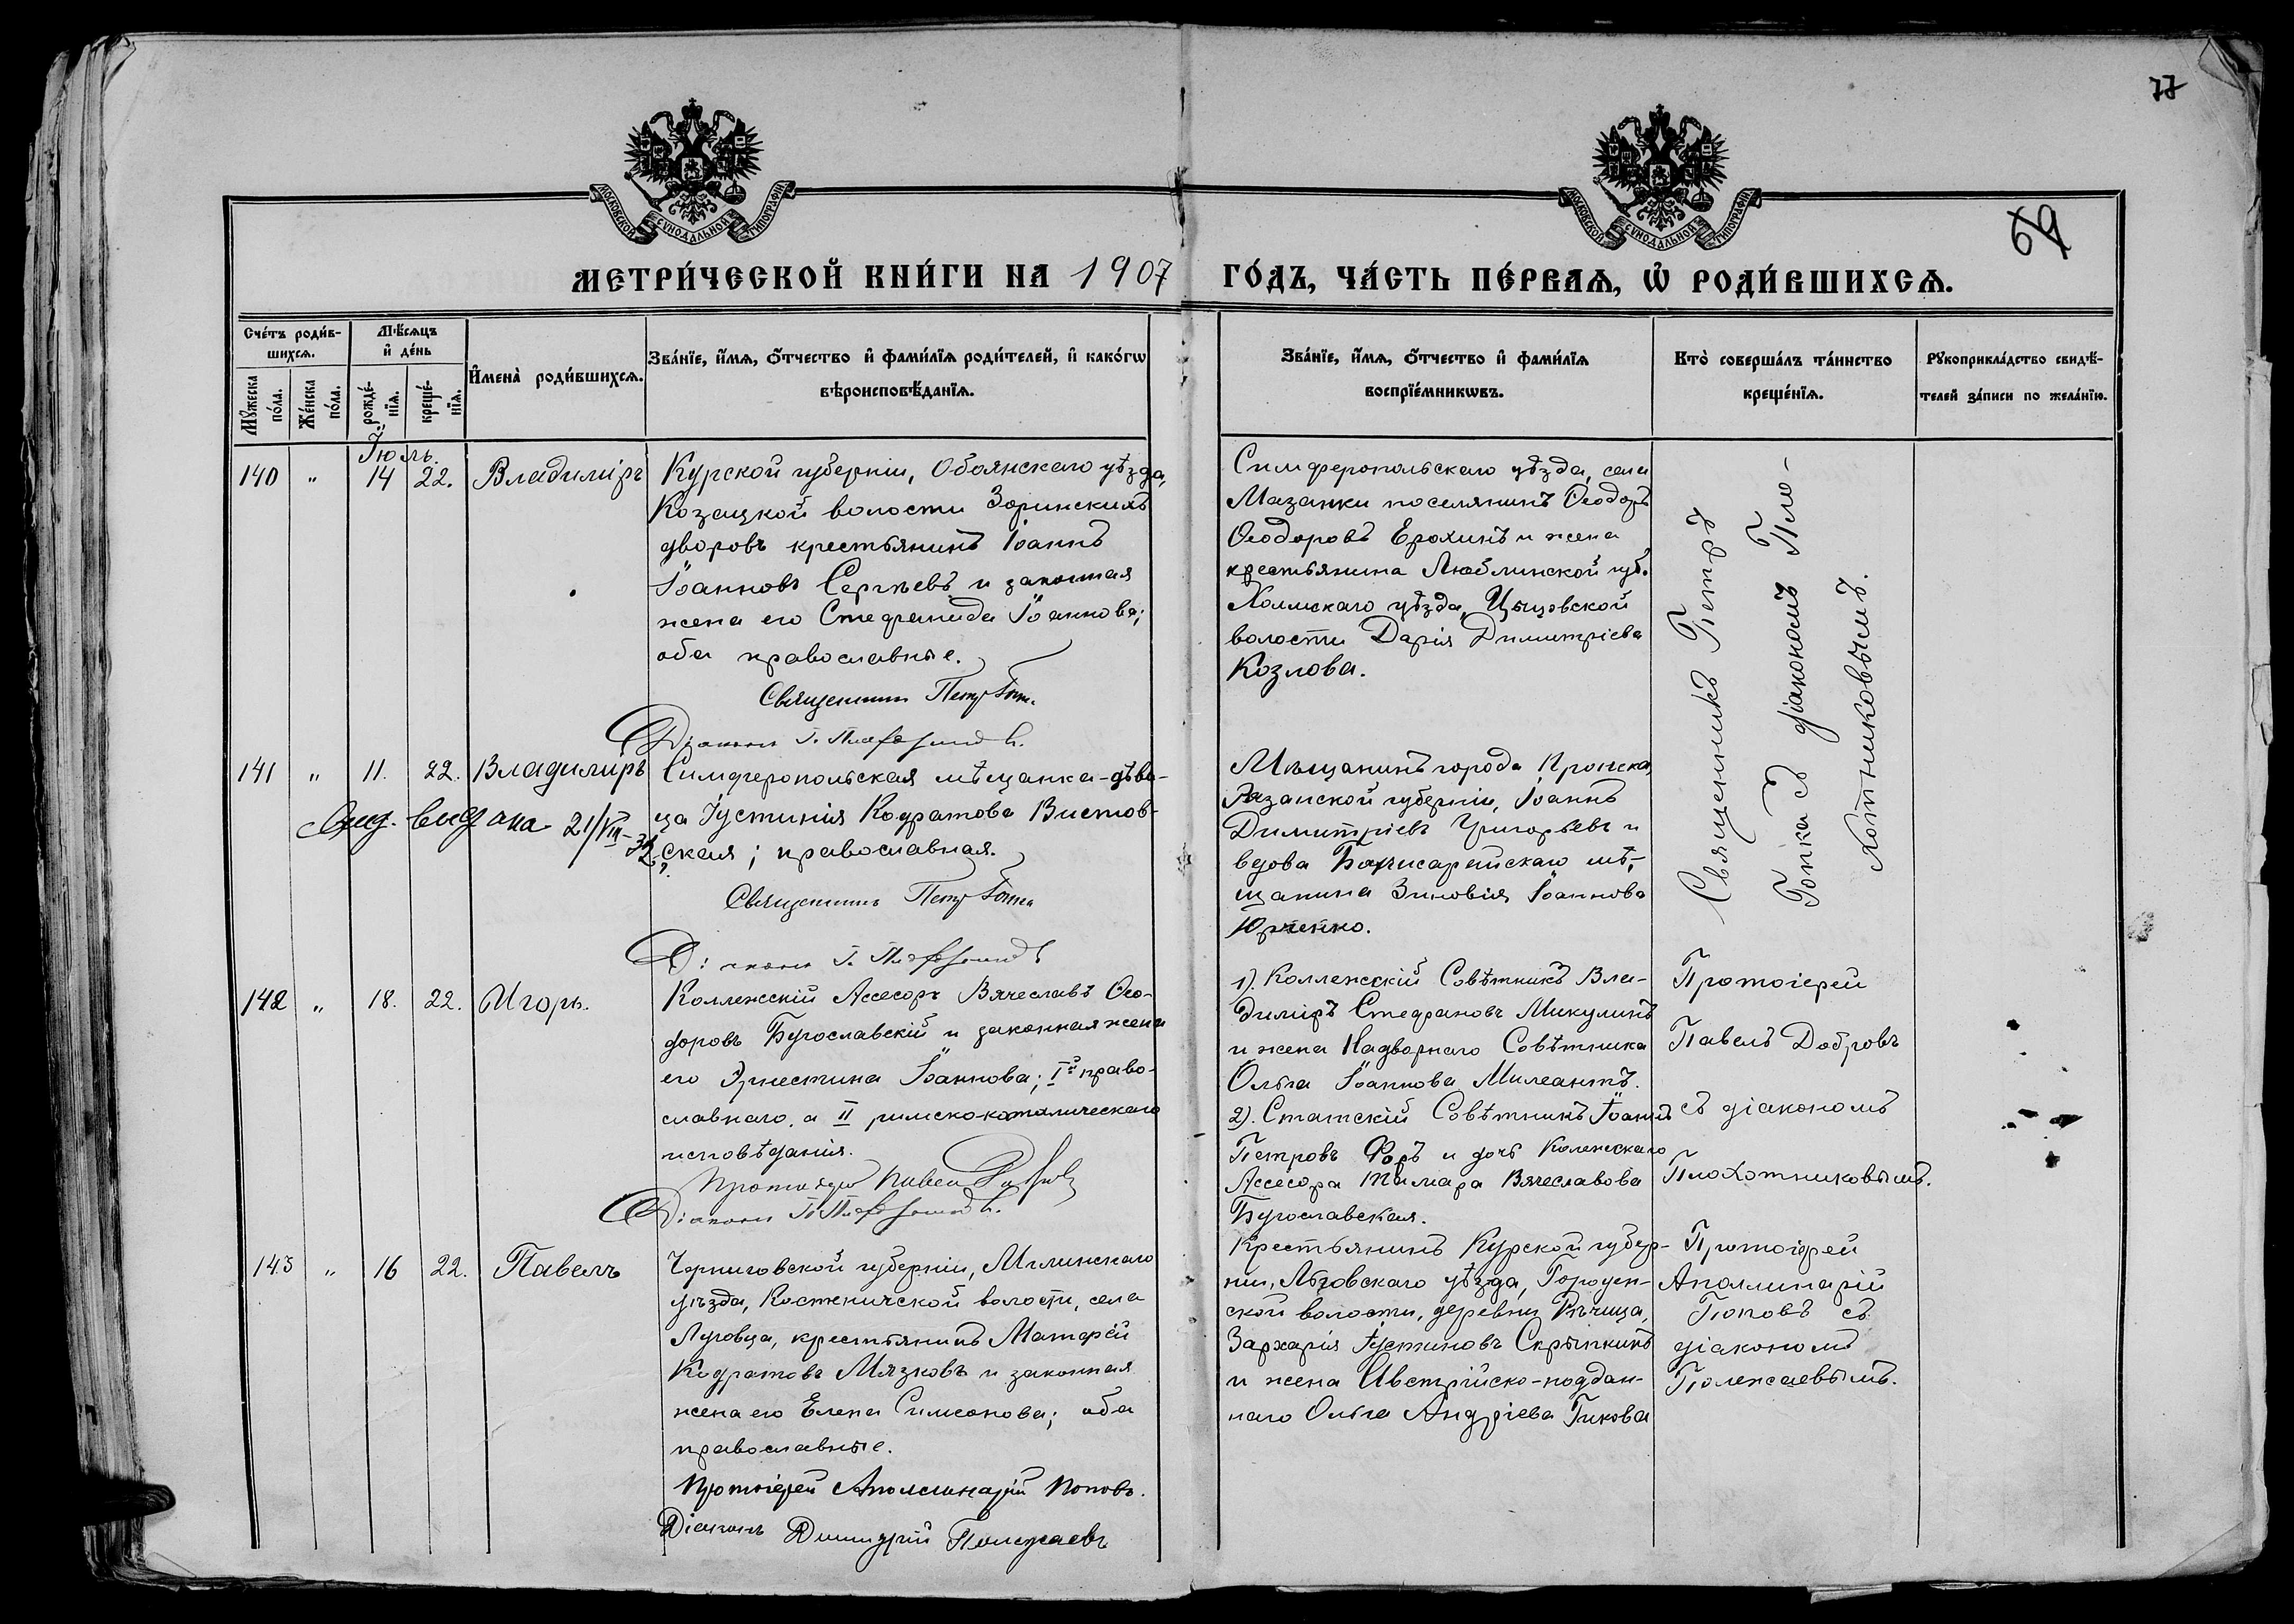 77
69
МОСКОВСКОЙ СѴНОДАЛЬНОЙ ТИПОГРАФІИ
МОСКОВСКОЙ СѴНОДАЛЬНОЙ ТИПОГРАФІИ
МЕТРИ́ЧЕСКОЙ КНИ́ГИ НА 1907 ГО́ДЪ, ЧА́СТЬ ПЕ́РВАѦ, Ѡ҆ РОДИ́ВШИХСѦ.
Сче́тъ роди́в-
шихсѧ.
Мꙋ́жеска по́ла.
Же́нска по́ла.
Мѣ́сѧцъ
и҆ де́нь
рожде́-
нїѧ.
креще́-
нїѧ.
И҆мена̀ роди́вшихсѧ.
Зва́нїе, и҆́мѧ, ѻ҆́тчество и҆ фами́лїѧ роди́телей, и҆ како́гѡ
вѣроисповѣ́данїѧ.
Зва́нїе, и҆́мѧ, ѻ҆́тчество и҆ фами́лїѧ
воспрїе́мникѡвъ.
Кто̀ соверша́лъ та́инство
креще́нїѧ.
Рꙋкоприкла́дство свидѣ́-
телей за́писи по жела́нїю.
Іюль.
140 " 14 22. Владиміръ
Курской губерніи, Обоянскаго уѣзда,
Козацкой волости Зоринскихъ
дворовъ крестьянинъ Іоаннъ
Іоанновъ Сергѣевъ и законная
жена его Стефанида Іоаннова;
оба православные.
Священникъ Петръ Гопка.
Діаконъ П. Плохотниковъ.
Симферопольскаго уѣзда, села
Мазанки поселянинъ Ѳеодоръ
Ѳеодоровъ Ерохинъ и жена
крестьянина Люблинской губ.
Холмскаго уѣзда, Цыцовской
волости Дарія Димитріева
Козлова.
Священникъ Петръ
Гопка съ діакономъ Пло-
хотниковымъ.
141 " 11. 22. Владиміръ
выдана 21/VII-32
Симферопольская мѣщанка-дѣви-
ца Іустинія Кодратова Витов-
ская; православная.
Священникъ Петръ Гопка
Діаконъ П. Плохотниковъ
Мѣщанинъ города Пронска,
Рязанской губерніи, Іоаннъ
Димитріевъ Григорьевъ и
вдова Бахчисарайскаго мѣ-
щанина Зиновія Іоаннова
Юрченко.
142 " 18. 22. Игорь.
Коллежскій Ассесоръ Вячеславъ Ѳео-
доровъ Бугославскій и законная жена
его Эрнестина Іоаннова; I-й право-
славнаго, а II римско-католическаго
исповѣданія.
Протоіерей Павелъ Добровъ
Діаконъ П. Плохотниковъ.
1). Коллежскій Совѣтникъ Вла-
диміръ Стефановъ Микулинъ
и жена Надворнаго Совѣтника
Ольга Іоаннова Милеантъ.
2). Статскій Совѣтникъ Іоаннъ
Петровъ Форъ и дочь Коллежскаго
Ассесора Тамара Вячеславова
Бугославская.
Протоіерей
Павелъ Добровъ
съ діакономъ
Плохотниковымъ.
143 " 16 22. Павелъ
Черниговской губерніи, Мглинскаго
уѣзда, Костеничской волости, села
Луговца, крестьянинъ Матфей
Кодратовъ Мязковъ и законная
жена его Елена Симеонова; оба
православные.
Протоіерей Аполлинарій Поповъ.
Діаконъ Димитрій Полежаевъ
Крестьянинъ Курской губер-
ніи, Льговскаго уѣзда, Городен-
ской волости, деревни Рѣчица,
Захарія Іустиновъ Скрыпкинъ
и жена Австрійско-поддан-
наго Ольга Андріева Гикова
Протоіерей
Аполлинарій
Поповъ съ
діакономъ
Полежаевымъ.